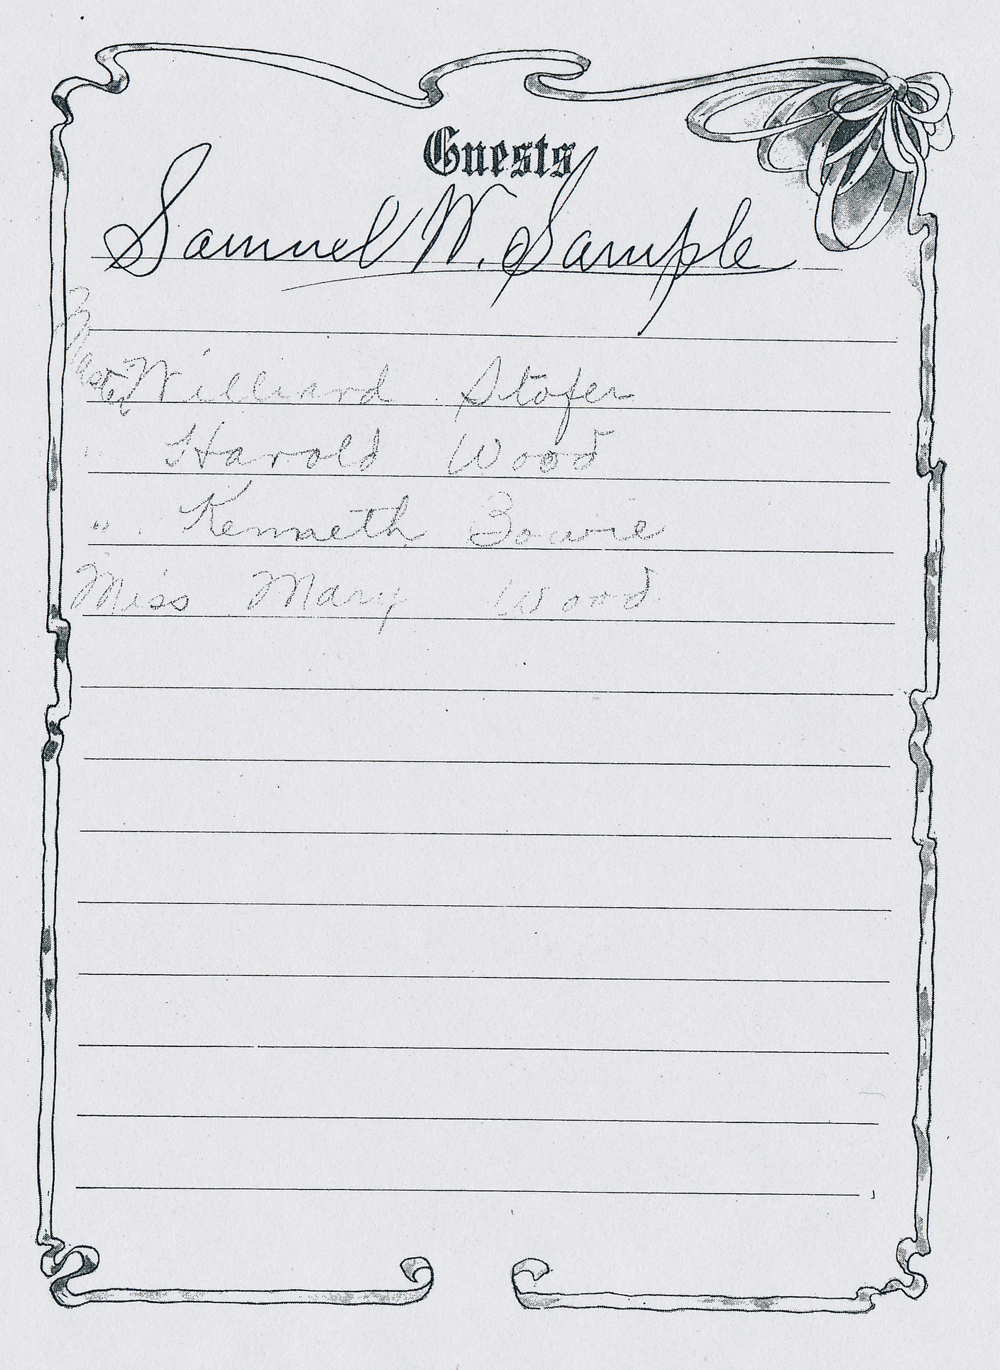 Guests
Samuel W. Sample
Master Williard Stofer
" Harold Wood
" Kenneth Bowie
Miss Mary Wood